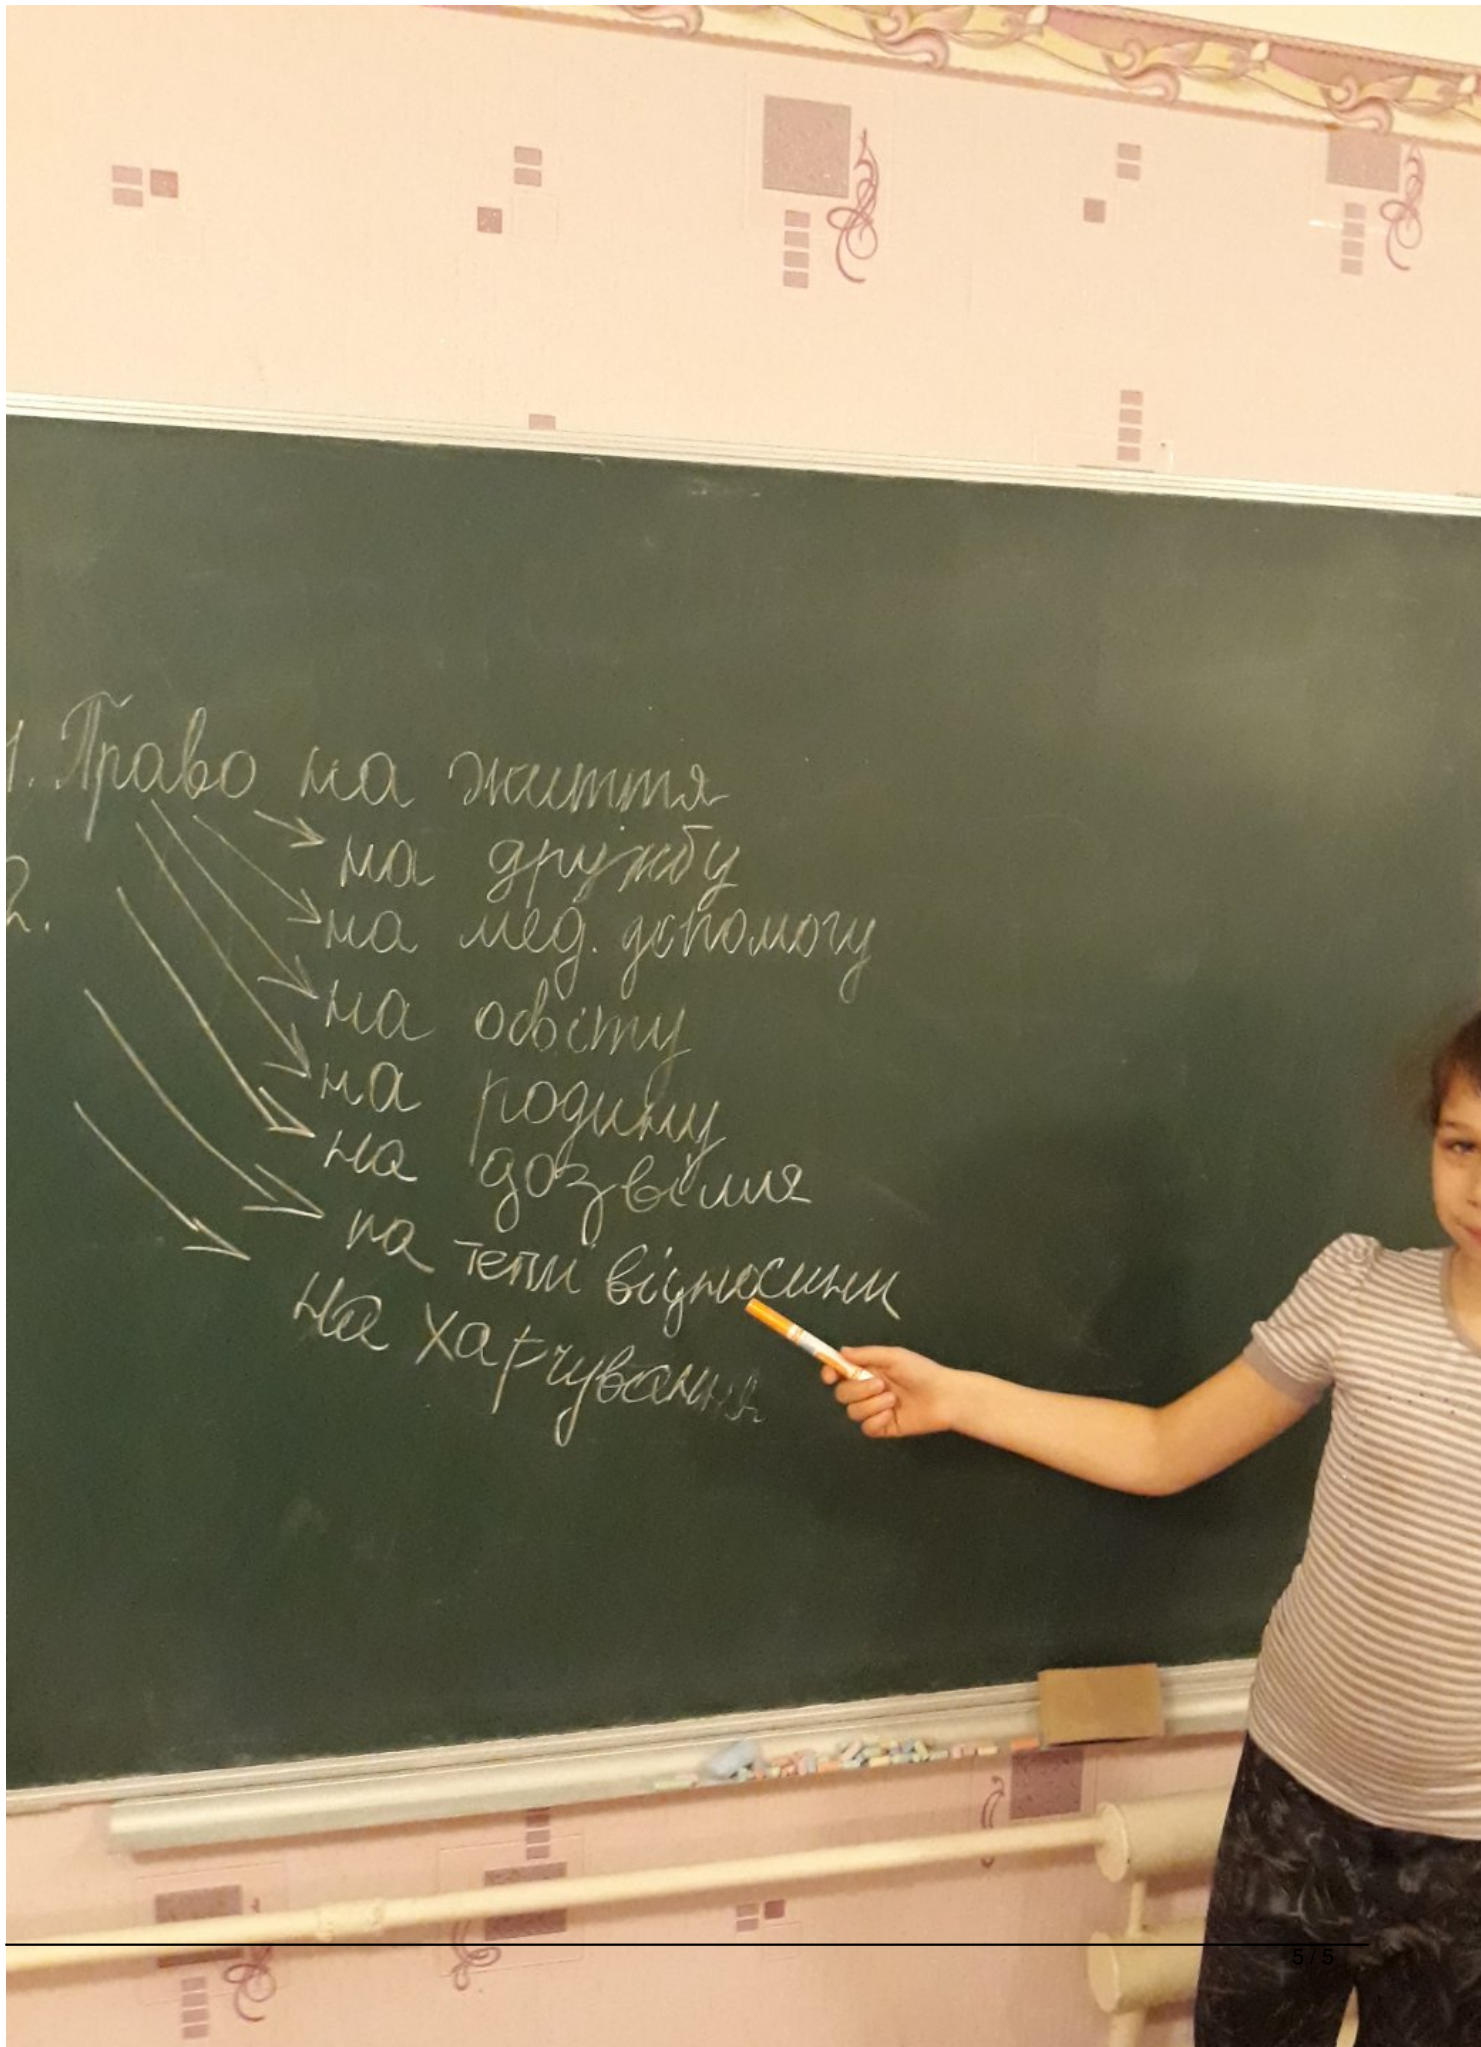 1. Право на життя
на дружбу
2.
на мед. допомогу
на освіту
на родину
на дозвілля
на теплі відносини
на харчування
5 / 5